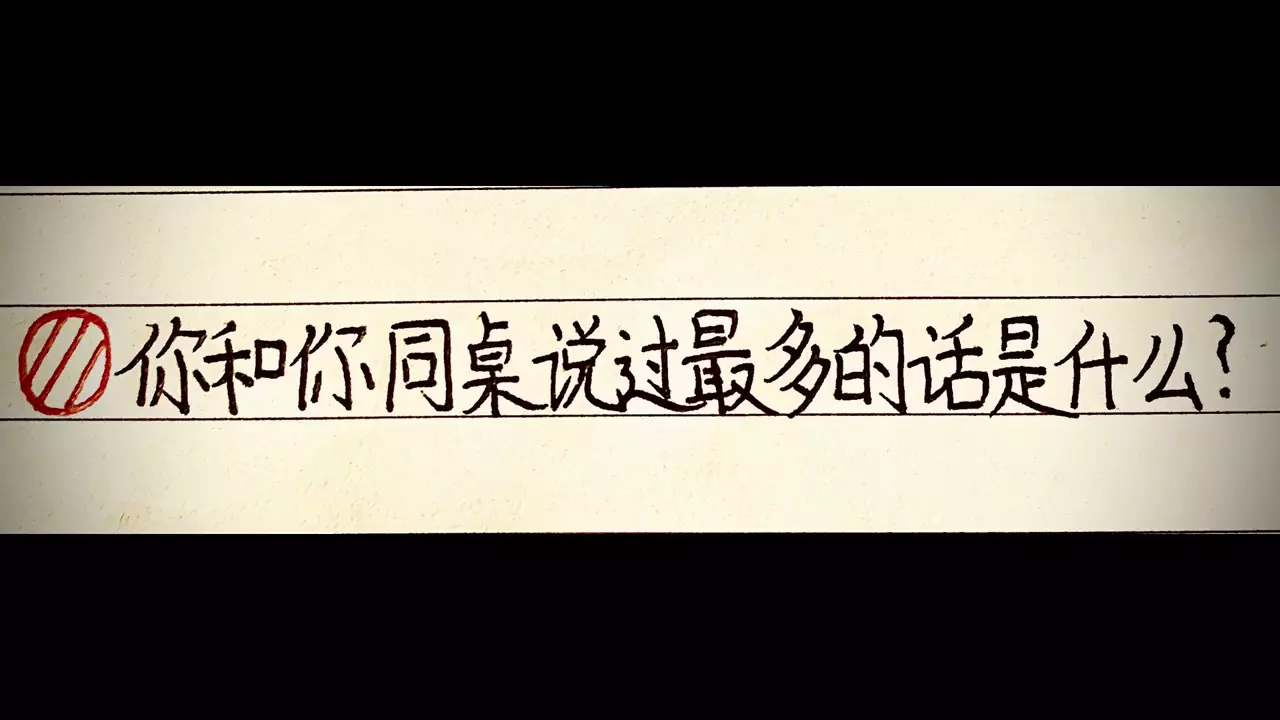 你和你同桌说过最多的话是什么?